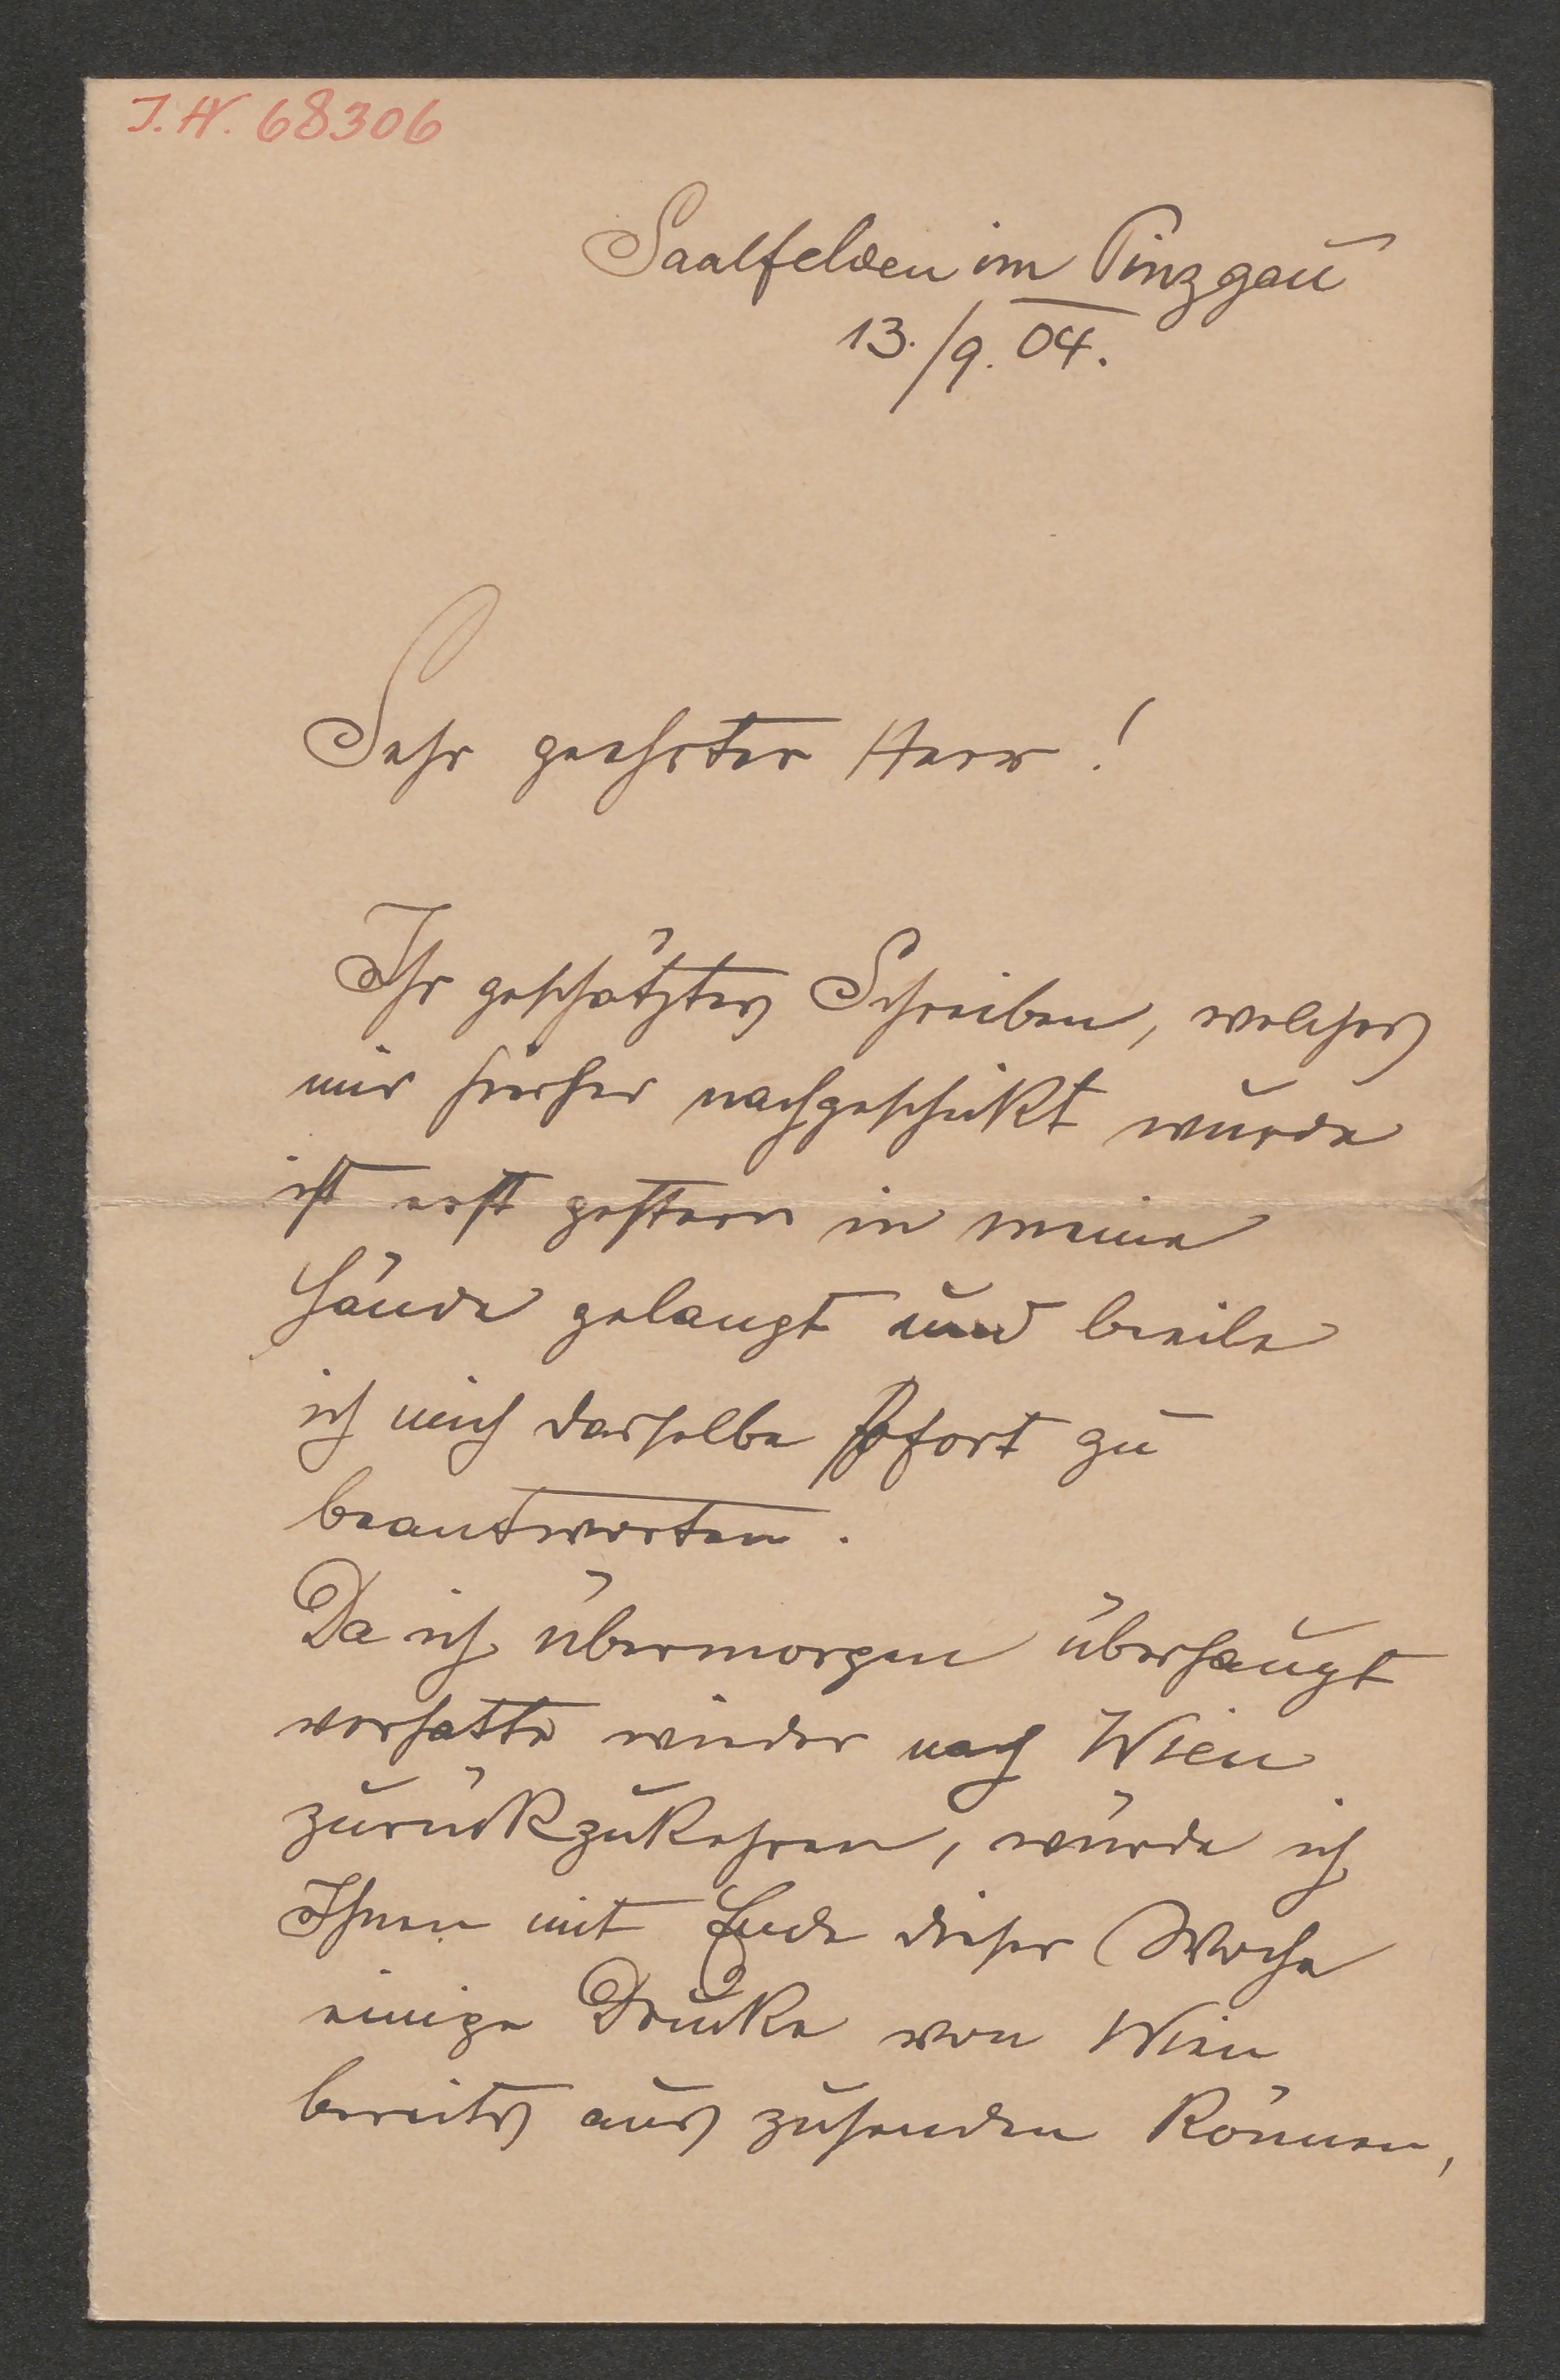 J. N. 68306
Saalfelden im Pinzgau
13./9. 04.
Sehr geehrter Herr!
Ihr geschätztes Schreiben, welches
mir hierher nachgeschikt wurde
ist erst gestern in meine
Hände gelangt und beeile
ich mich dasselbe sofort zu
beantworten.
Da ich übermorgen überhaupt
vorhatte wieder nach Wien
zurückzukehren, würde ich
Ihnen mit Ende dieser Woche
einige Drucke von Wien
bereits aus zusenden können,